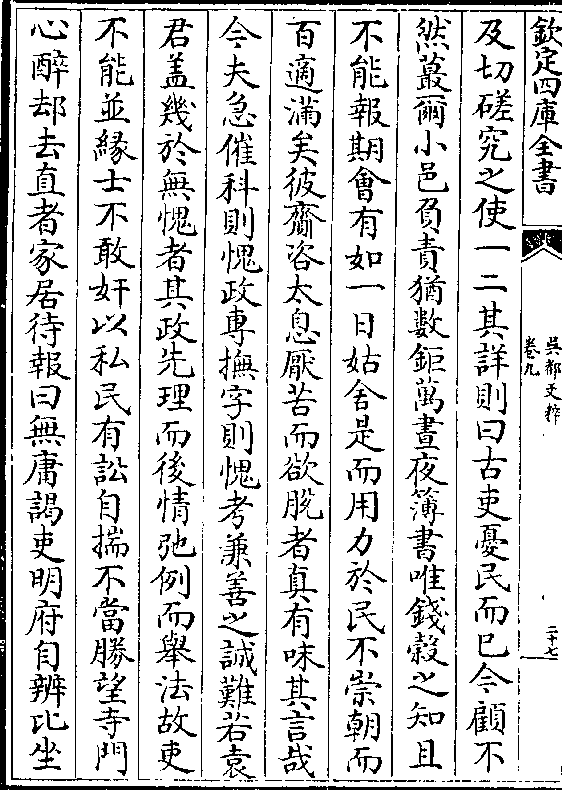 欽定四庫全書
吳都文粹
卷九
二十七
及切磋究之使一二其詳則曰古吏憂民而已今顧不
然蕞爾小邑負責猶數鉅萬晝夜簿書唯錢穀之知且
不能報期會有如一日姑舍是而用力於民不崇朝而
百適滿矣彼齎咨太息厭苦而欲脫者真有味其言哉
今夫急催科則愧政專撫字則愧考兼善之誠難若袁
君盖幾於無愧者其政先理而後情弛例而舉法故吏
不能並緣士不敢奸以私民有訟自揣不當勝望寺門
心醉却去直者家居待報曰無庸謁吏明府自辨比坐